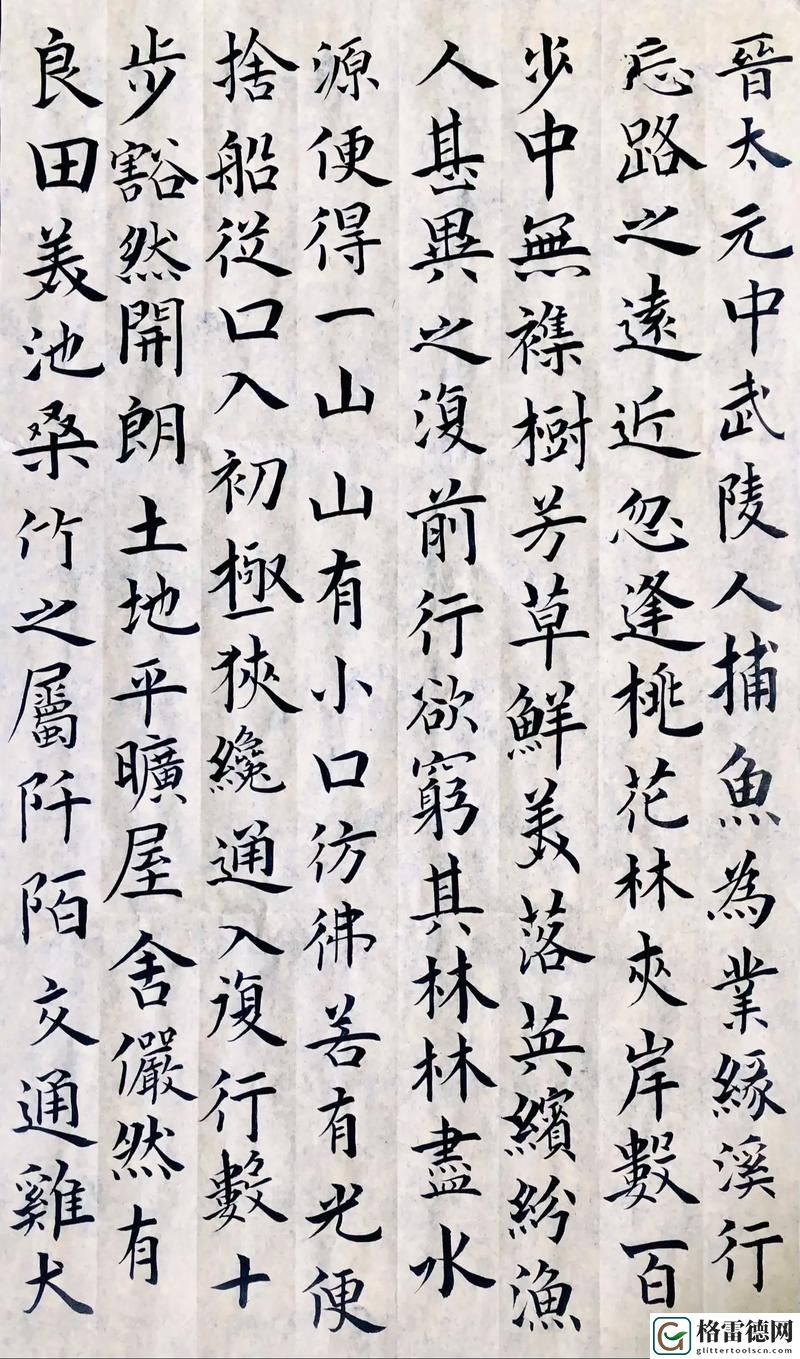 晉太元中武陵人捕魚為業緣溪行
忘路之遠近忽逢桃花林夾岸數百
步中無襍樹芳草鮮美落英繽紛漁
人甚異之復前行欲窮其林林盡水
源便得一山山有小口彷彿若有光便
捨船從口入初極狹纔通入復行數十
步豁然開朗土地平曠屋舍儼然有
良田美池桑竹之屬阡陌交通雞犬
格雷德网
glittertoolscn.com